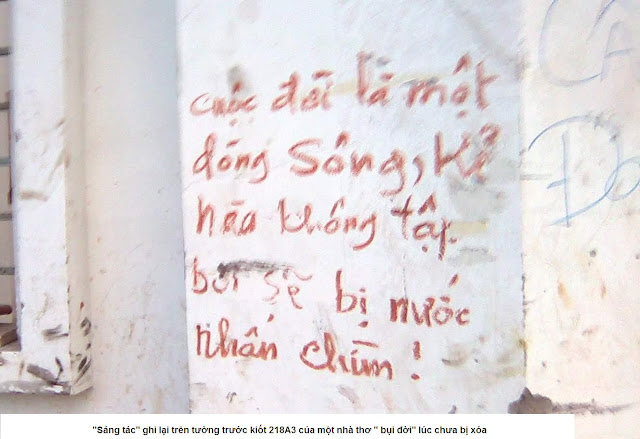 cuộc đời là một
dòng sông, kẻ
nào không tập
bơi sẽ bị nước
nhấn chìm!
CA
Do
"Sáng tác" ghi lại trên tường trước kiốt 218A3 của một nhà thơ " bụi đời" lúc chưa bị xóa